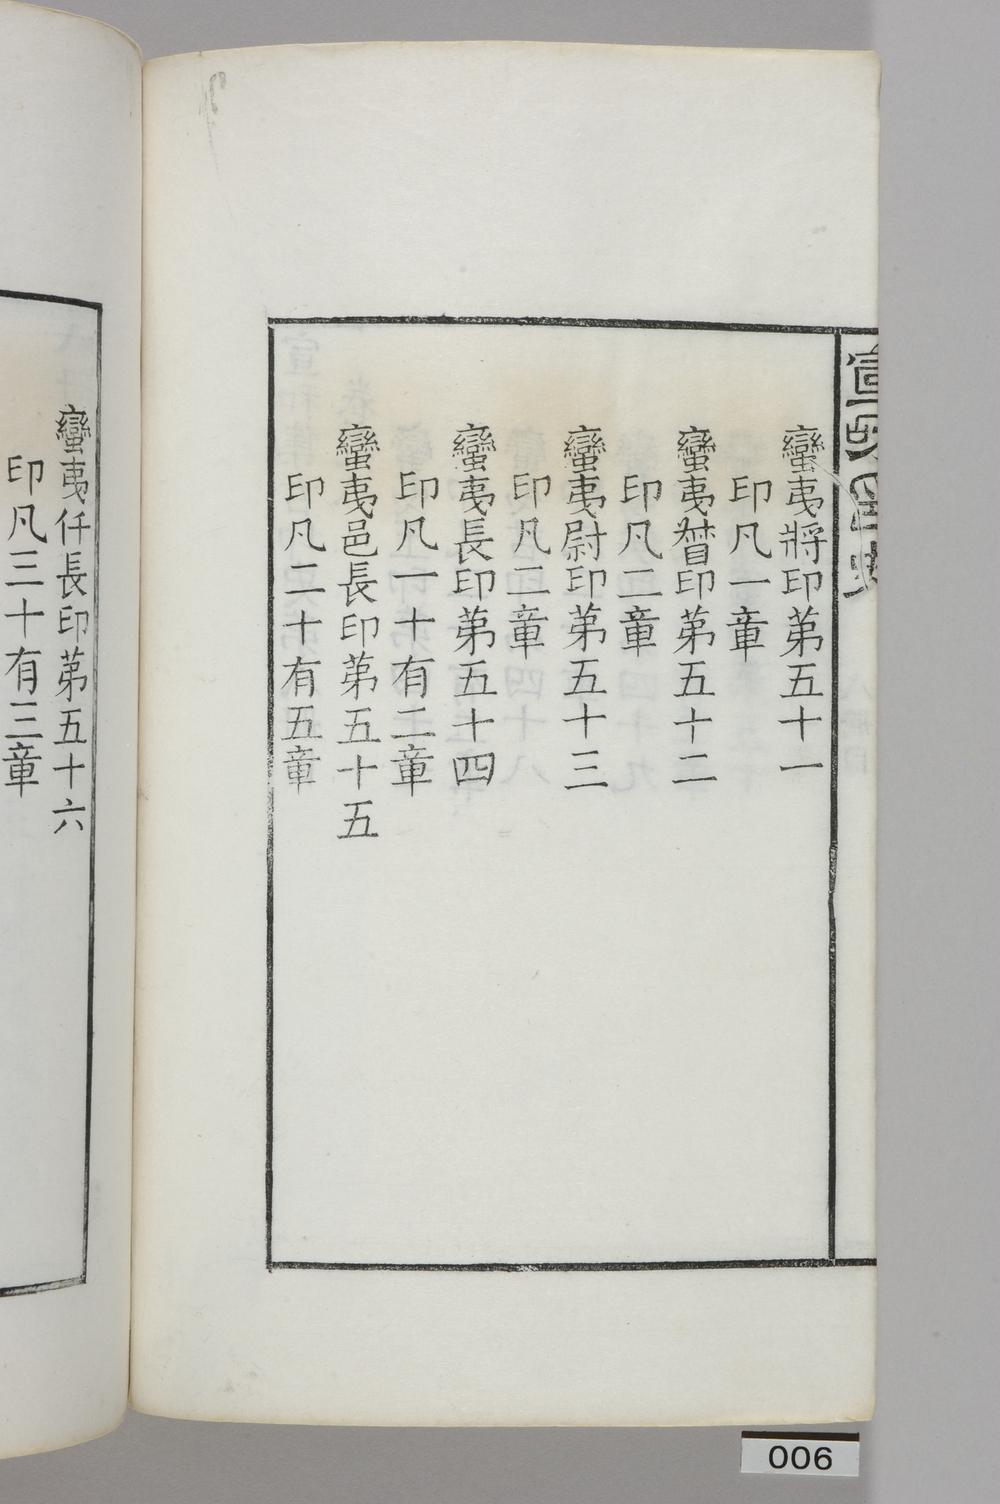 蠻夷將印第五十一
印凡一章
蠻夷督印第五十二
印凡二章
蠻夷尉印第五十三
印凡二章
蠻夷長印第五十四
印凡一十有二章
蠻夷邑長印第五十五
印凡二十有五章
蠻夷仟長印第五十六
印凡三十有三章
006